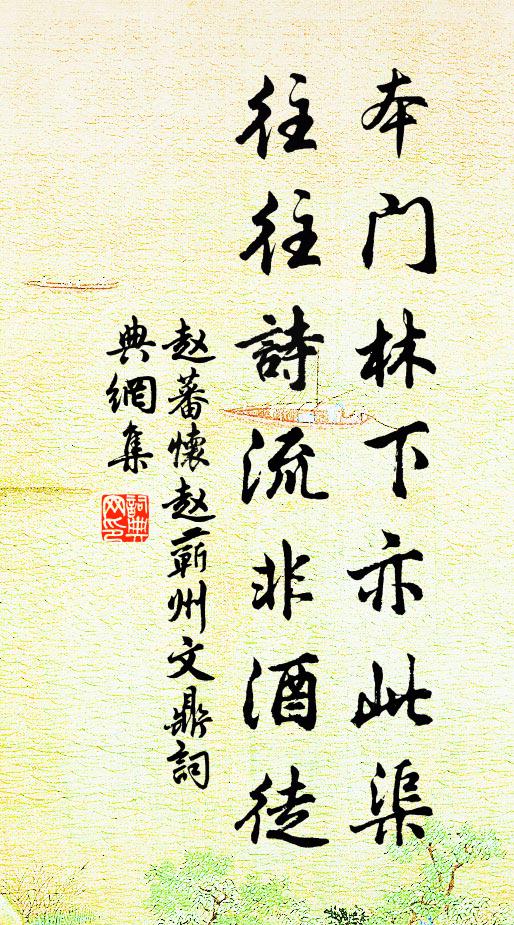 本门林下亦此渠
往往詩流非酒徒
赵蕃懷赵蕲州文鼎詞
典網集
詞典网印